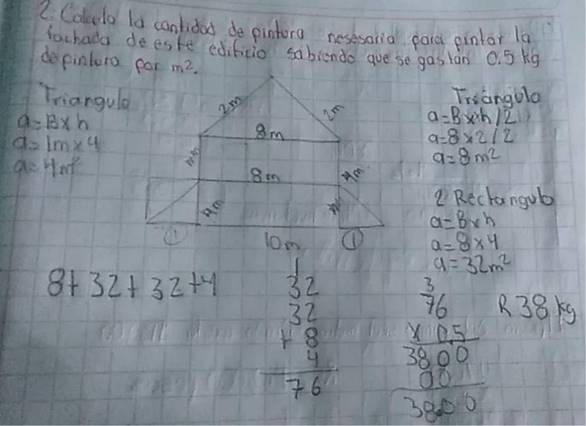 2. Calculo la cantidad de pintura nesesaria para pintar la
fachada de este edificio sabiendo que se gastan 0.5 kg
de pintura por m².
Triangulo
a=B×h
a=1m×4
a=4m²
2m
2m
8m
4m
8m
4m
4m
1
10m
1
Triángulo
a=B×h/2
a=8×2/2
a=8m²
2 Rectangulo
a=B×h
a=8×4
a=32m²
8+32+32+4
1
32
32
+ 8
4
76
3
76
×0.5
3800
00
3800
R 38 kg